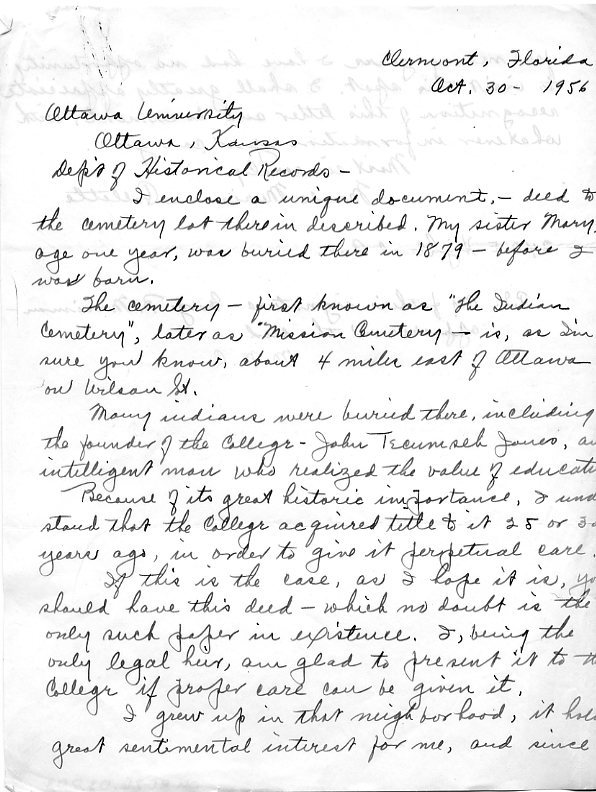 Clermont, Florida
Oct. 30 - 1956
Ottawa University
Ottawa, Kansas
Dep't of Historical Records -
I enclose a unique document, - deed to
the cemetery lot therein described. My sister Mary,
age one year, was buried there in 1879 - before I
was born.
The cemetery - first known as "The Indian
Cemetery", later as "Mission Cemetery - is, as I'm
sure you know, about 4 miles east of Ottawa
on Wilson St.
Many indians were buried there, including
the founder of the College - John Tecumseh Jones, an
intelligent man who realized the value of educati
Because of its great historic importance, I und
stand that the College acquired title to it 25 or 30
years ago, in order to give it perpetual care.
If this is the case, as I hope it is, yo
should have this deed - which no doubt is the
only such paper in existence. I, being the
only legal heir, am glad to present it to th
College if proper care can be given it.
I grew up in that neighborhood, it hold
great sentimental interest for me, and since